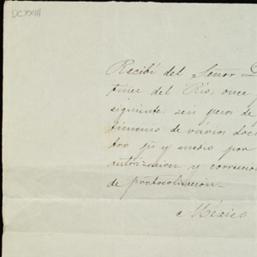 DCXXIII
Recibí del Señor D
tinez del Rio, once
siguiente seis pesos de
timonio de varios doc
tro ps y medio por
autorizacion y correccion
de protocolizacion.
México